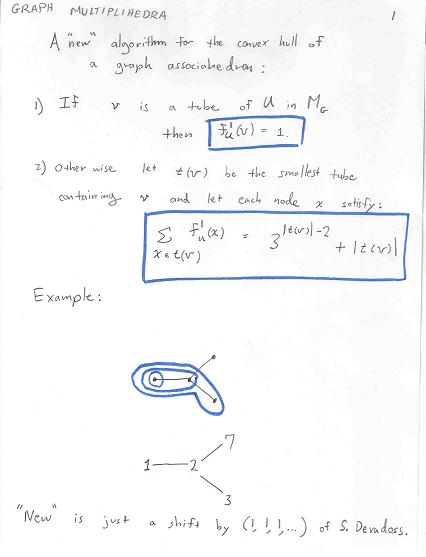 GRAPH MULTIPLIHEDRA 1
A "new" algorithm for the convex hull of
a graph associahedron:
1) If v is a tube of U in M_G
then f_u^1(v) = 1.
2) Otherwise let t(v) be the smallest tube
containing v and let each node x satisfy:
Σ_{x∈t(v)} f_u^1(x) = 3^{|t(v)|-2} + |t(v)|
Example:
7
1 — 2
3
"New" is just a shift by (1,1,1,...) of S. Devadoss.